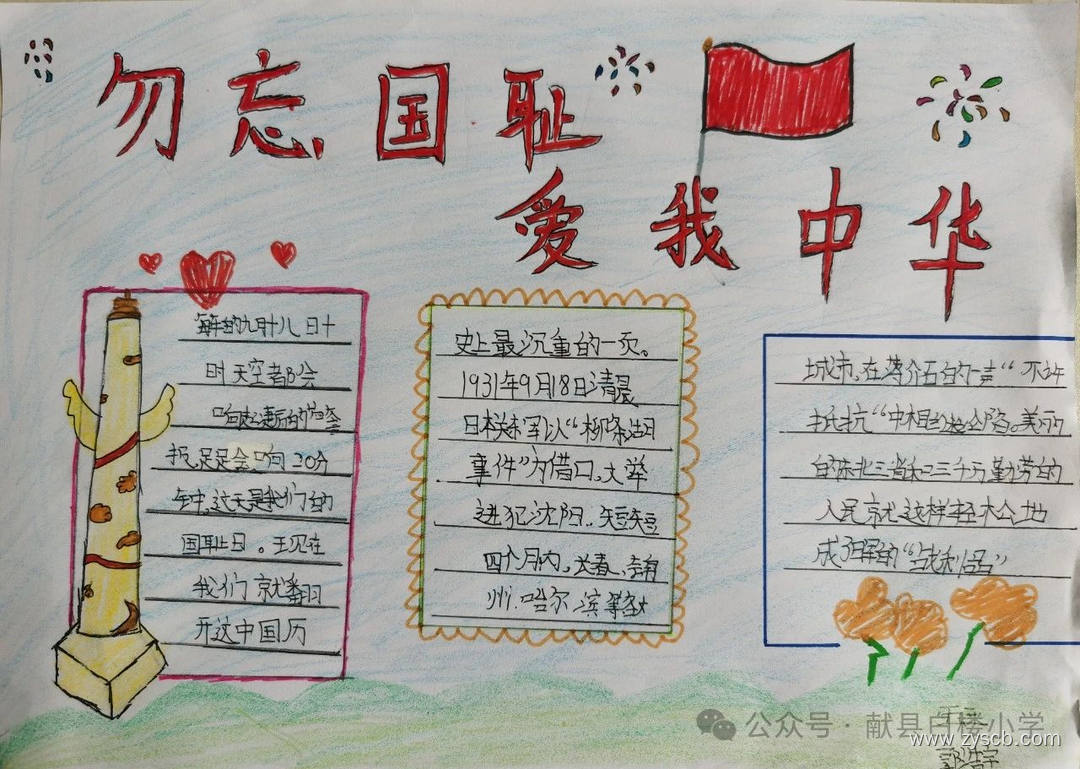 勿忘国耻
爱我中华
每年的九月十八日十
时天空都会
响起凄厉的警
报足足会响20分
钟,这天是我们的
国耻日。现在
我们就翻
开这中国历
史上最沉重的一页。
1931年9月18日清晨
日本关东军以“柳条湖
事件”为借口,大举
进犯沈阳.短短
四个月内,长春、
州.哈尔滨等
城市,在蒋介石的一声“不许
抵抗”中相继沦陷。美丽
的东北三省和三千万勤劳的
人民就这样轻松地
成了日军的“战利品”
公众号·献县白楼小学
www.zyscb.com